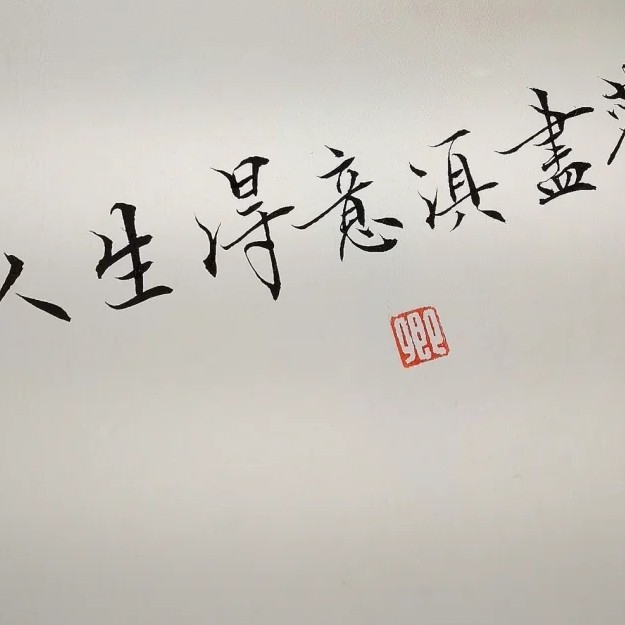 人生得意滇盡